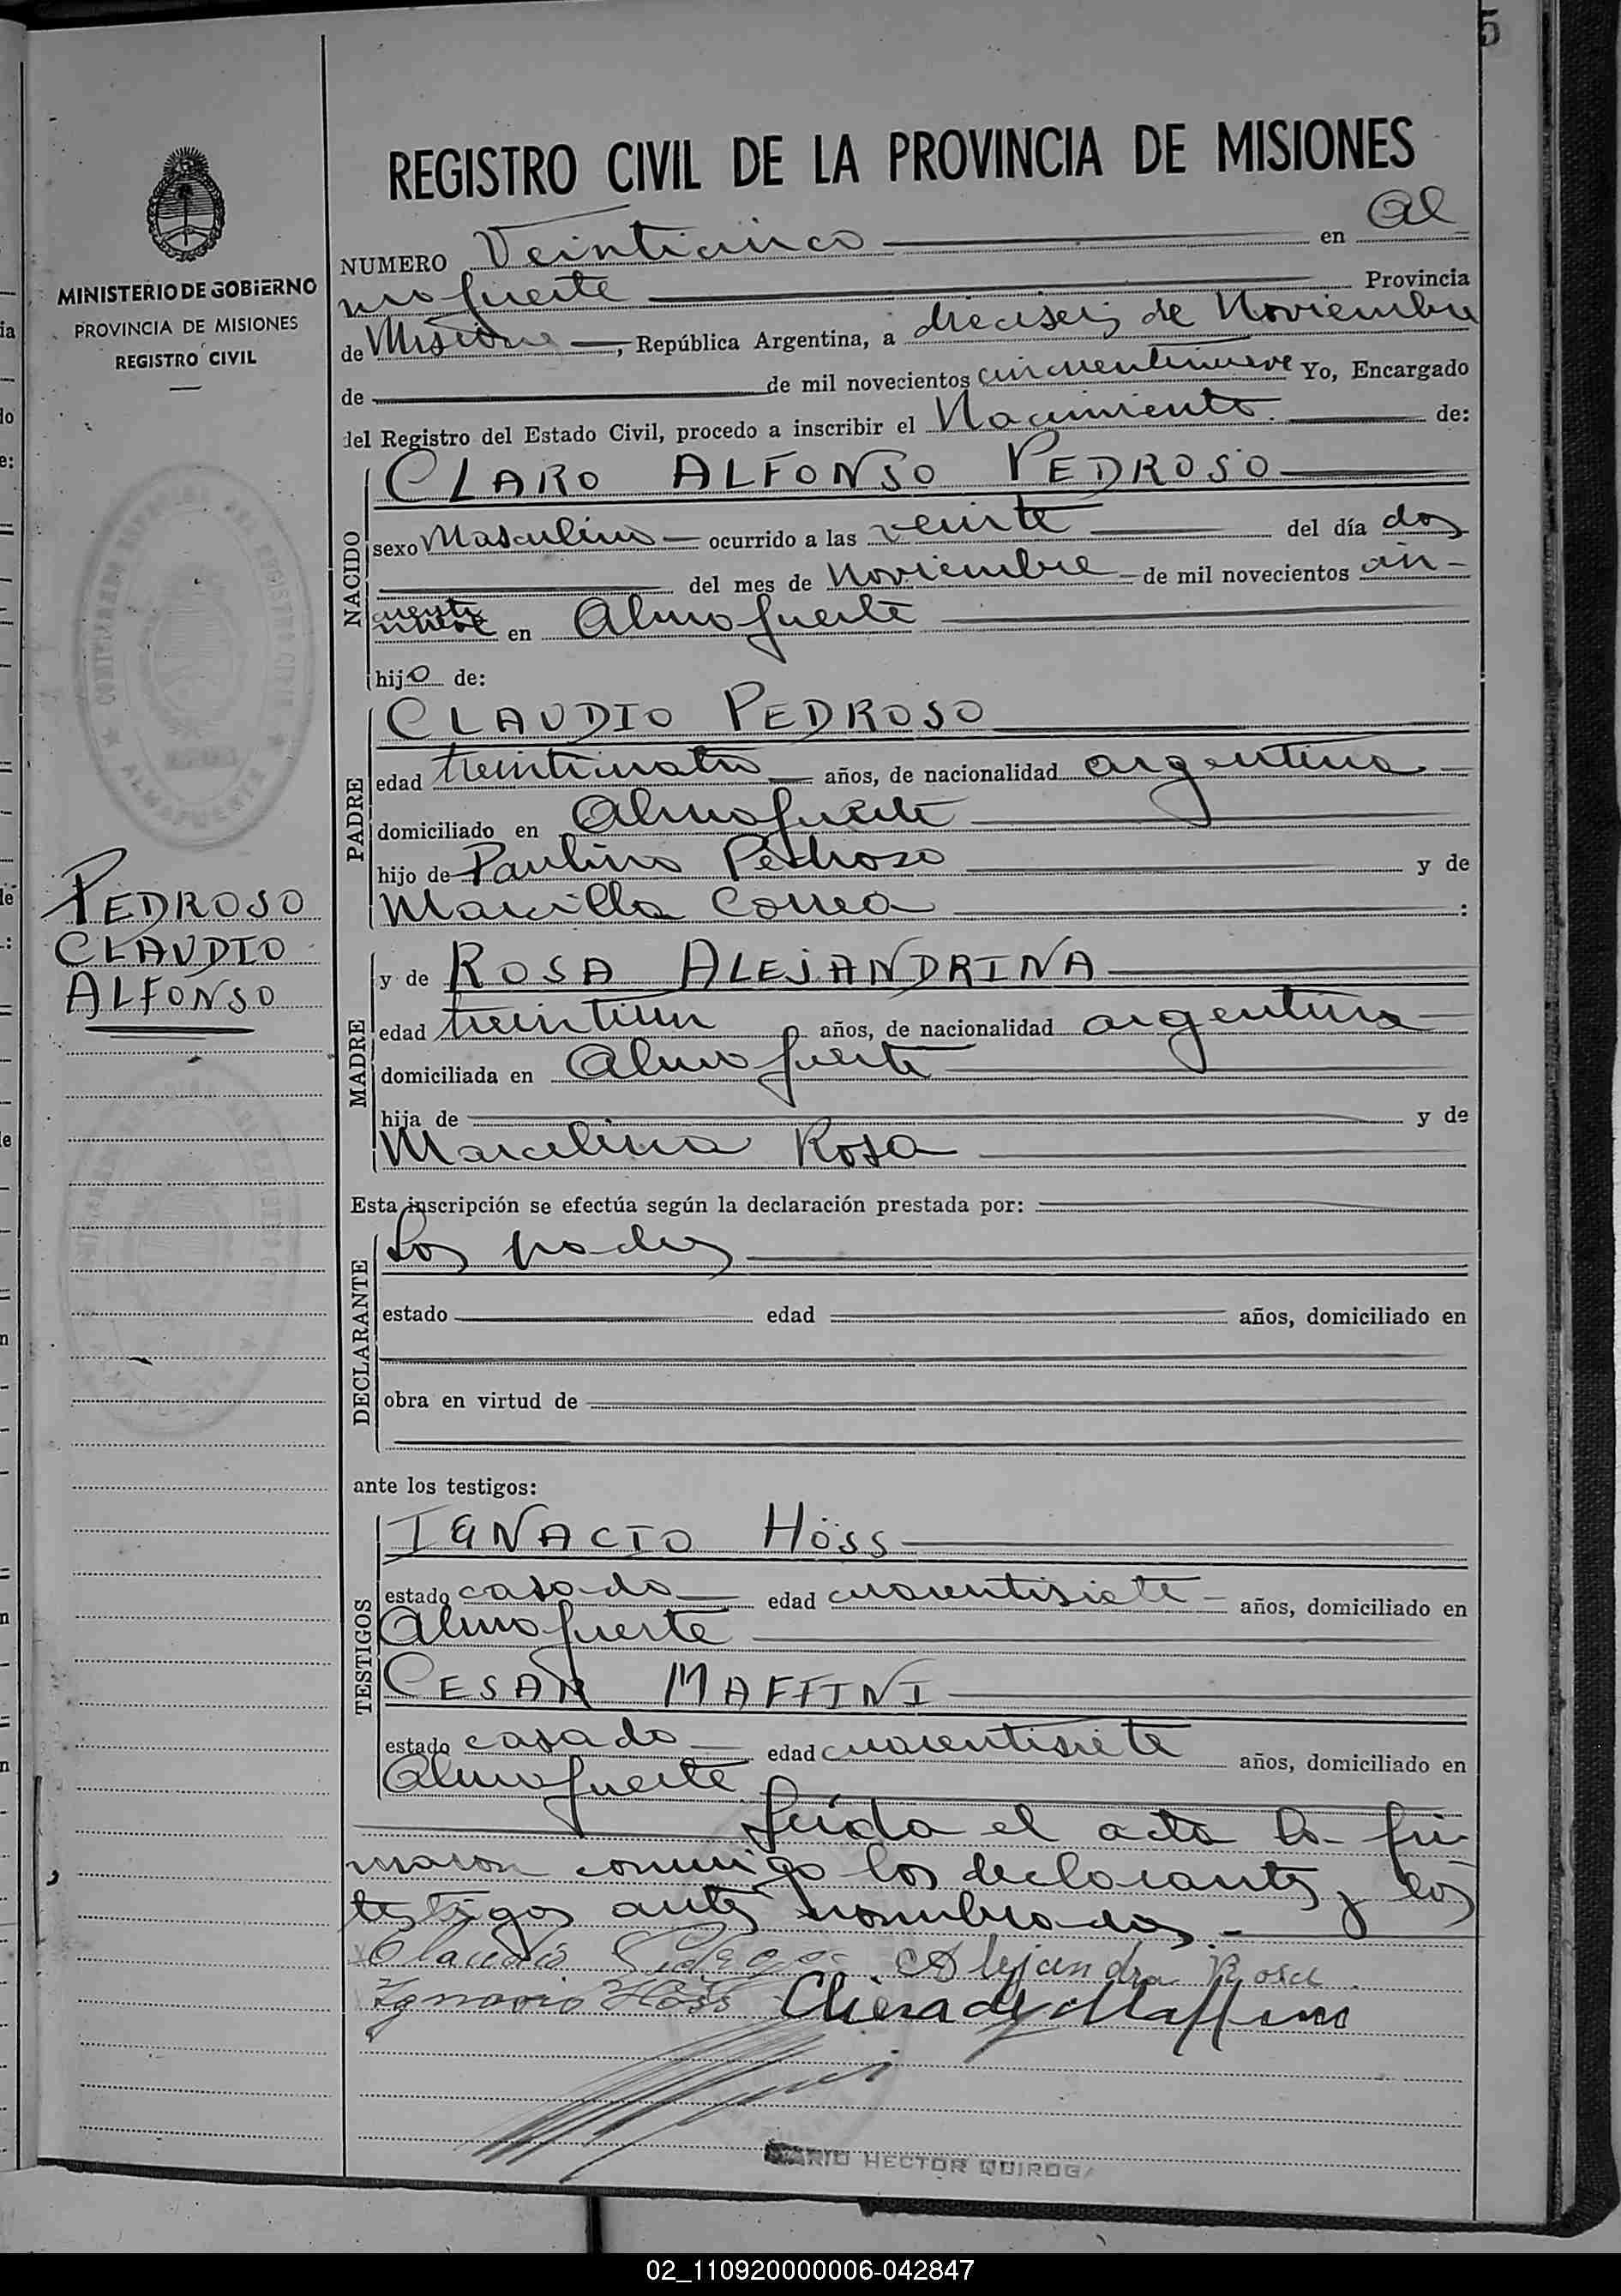 5
MINISTERIO DE GOBIERNO
PROVINCIA DE MISIONES
REGISTRO CIVIL
PEDROSO
CLAUDIO
ALFONSO
REGISTRO CIVIL DE LA PROVINCIA DE MISIONES
NUMERO Veinticinco en Al
mafuerte Provincia
de Misiones, República Argentina, a dieciseis de Noviembre
de de mil novecientos cincuentinueve Yo, Encargado
del Registro del Estado Civil, procedo a inscribir el Nacimiento de:
NACIDO
CLARO ALFONSO PEDROSO
sexo Masculino ocurrido a las veinte del día dos
del mes de Noviembre de mil novecientos cin-
cuenta nueve en Almafuerte
hijo de:
PADRE
CLAUDIO PEDROSO
edad treinticuatro años, de nacionalidad argentina
domiciliado en Almafuerte
hijo de Paulino Pedroso y de
Marcilla Correa :
MADRE
y de ROSA ALEJANDRINA
edad treintiun años, de nacionalidad argentina
domiciliada en Almafuerte
hija de y de
Marcelina Rosa
Esta inscripción se efectúa según la declaración prestada por:
DECLARANTE
Los padres
estado edad años, domiciliado en
obra en virtud de
ante los testigos:
TESTIGOS
IGNACIO HÖSS
estado casado edad cuarentisiete años, domiciliado en
Almafuerte
CESAR MAFFINI
estado casado edad cuarentisiete años, domiciliado en
Almafuerte
Leída el acta la fir
maron conmigo los declarantes y los
testigos antes nombrados.-
Claudio Alejandra Rosa
Ignacio Höss Maffini
MARIO HECTOR QUIROGA
02_110920000006-042847